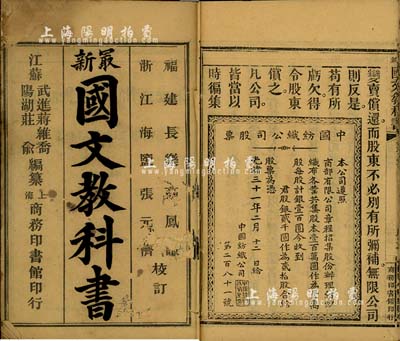 上海陽明拍賣
上海陽明拍賣
變賣償還而股東不必別有所彌補無限公司
則反是
苟有所
虧欠得
令股東
償之
凡公司
皆當以
時編集
中國紡織公司股票
本公司遵照
商部有限公司章程招集股份辦理紡
織布各業共集股本壹百萬圓作為壹萬
股每股計銀壹百圓今收到
君股銀貳千圓作為貳拾股合給
股票為憑
光緒三十一年二月十二日給
中國紡織公司
第二百八十一號
福建長樂鳳
浙江海鹽張元濟
校訂
最新
國文教科書
江蘇
武進蔣維喬
陽湖莊俞
編纂
上海商務印書館印行